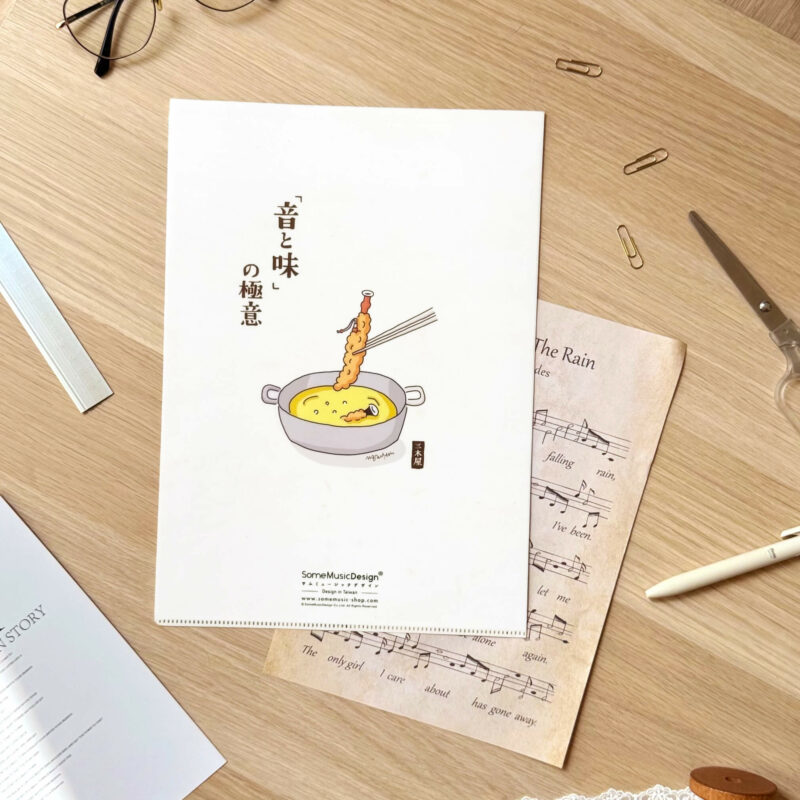 「音と味」
の極意
三木屋
SomeMusicDesign®
サムミュージックデザイン
Design in Taiwan
www.somemusic-shop.com
The Rain
des
falling rain,
I've been.
let me
alone again.
The only girl I care about has gone away.
N STORY